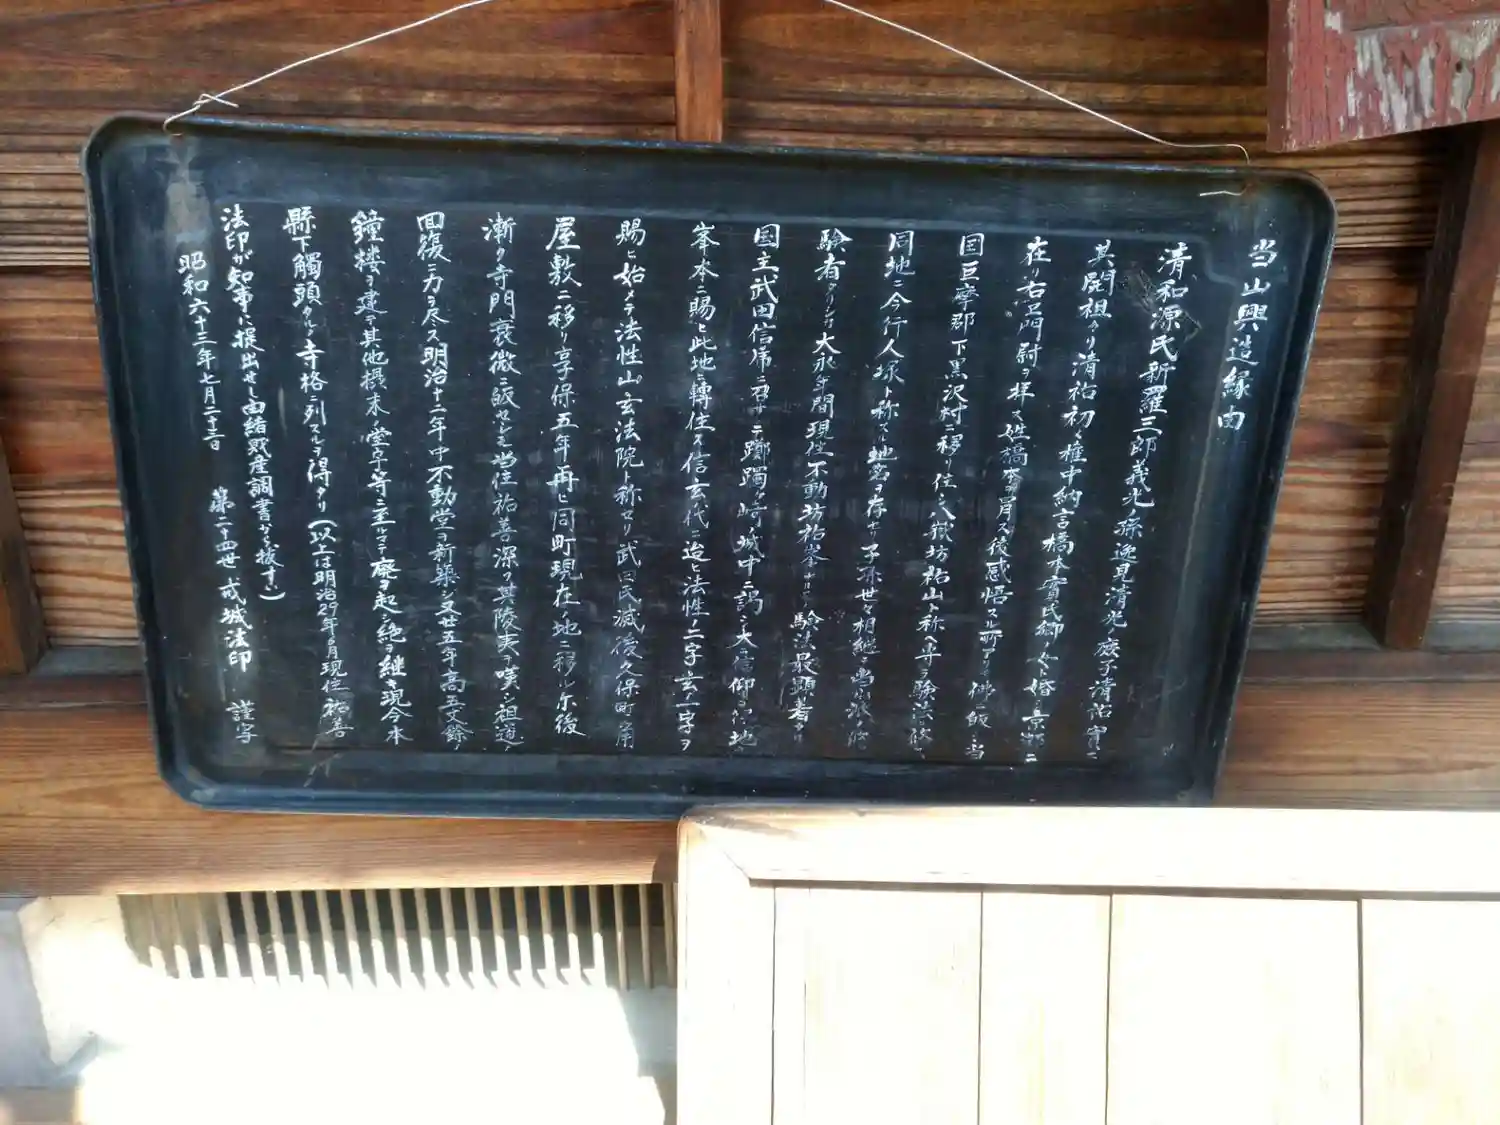 当山興造縁由
清和源氏新羅三郎義光ノ孫逸見清光ノ庶子清祐實ニ
其開祖タリ清祐初メ権中納言橋本實氏卿ノ女ト婚シ京都ニ
在リ右卫門尉ヲ拝ス姓橋本ヲ冒ス後感悟スル所アリ佛ニ皈シ当
国巨摩郡下黒沢村ニ移リ住シ八嶽坊祐山ト称ヘ専ラ験法ヲ修ム
同地ニ今行人塚ト称スル地名ヲ存セリ子孫世々相継ク当派ノ修
験者タリシガ大永年間現住不動坊祐峯ナルモ験法最顕著タリ
国主武田信虎ニ召サレテ躑躅ヶ崎城中ニ謁シ大ニ信仰ヲ得地
峯本ニ賜ヒ此地ニ轉住ス信玄代ニ迨ヒ法性ノ二字玄一字ヲ
賜ヒ始メテ法性山玄法院ト称セリ武田氏滅後久保町
屋敷ニ移リ享保五年再ヒ同町現在ノ地ニ移ル尓後
漸ク寺門衰微ニ皈セシモ当住祐善深ク其陵夷ヲ嘆シ祖道ノ
回復ニ力ヲ尽ス明治十二年中不動堂ヲ新築シ又廿五年高五丈餘ノ
鐘楼ヲ建テ其他摂末ノ堂宇等ニ至ルマテ廃ヲ起シ絶ヲ継キ現今本
縣下觸頭タルノ寺格ニ列スルヲ得タリ(以上は明治29年月現住祐善
法印が知事に提出せし由緒財産調書から抜すい)
昭和六十三年七月二十三日 第二十四世 戒城法印 謹写